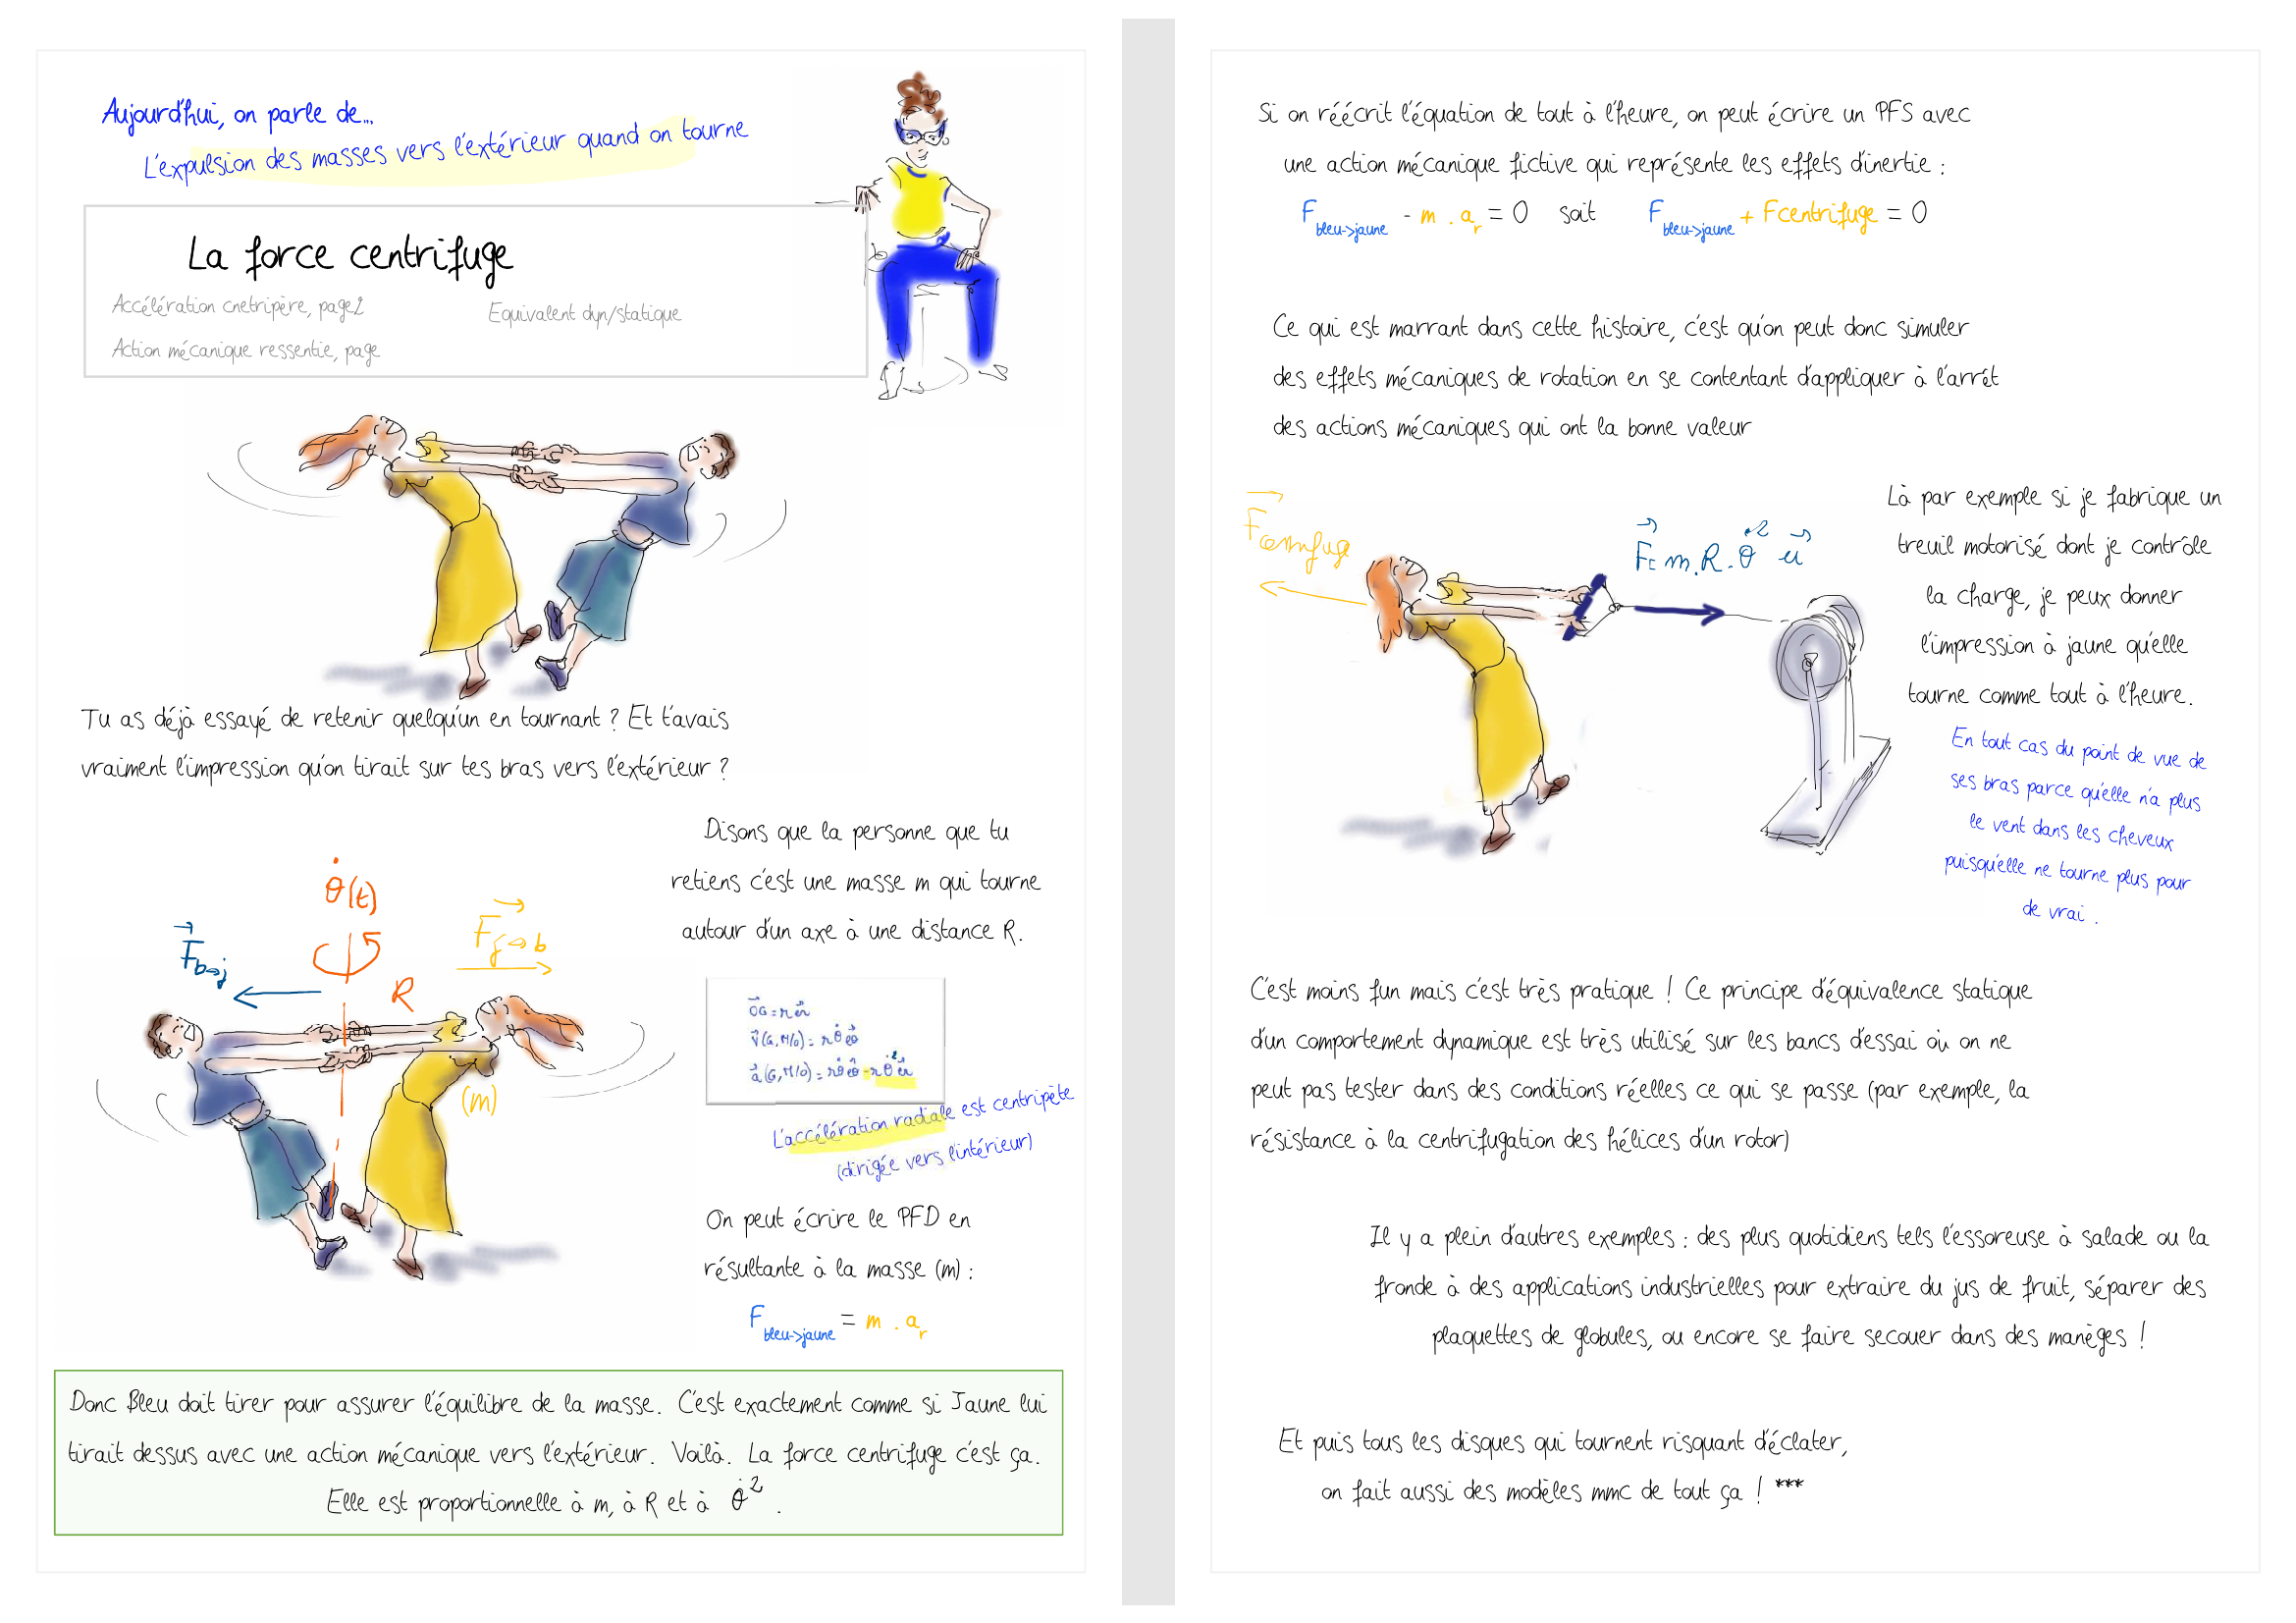 Aujourd'hui, on parle de...
L'expulsion des masses vers l'extérieur quand on tourne
La force centrifuge
Accélération cnetripère, page2
Equivalent dyn/statique
Action mécanique ressentie, page
Tu as déjà essayé de retenir quelqu'un en tournant ? Et t'avais
vraiment l'impression qu'on tirait sur tes bras vers l'extérieur ?
Disons que la personne que tu
retiens c'est une masse m qui tourne
autour d'un axe à une distance R.
θ̇(t)
F⃗b→j
F⃗j→b
R
(m)
O⃗G = r e⃗r
V⃗(G, M/0) = r θ̇ e⃗θ
a⃗(G, M/0) = r θ̈ e⃗θ - r θ̇² e⃗r
L'accélération radiale est centripète
(dirigée vers l'intérieur)
On peut écrire le PFD en
résultante à la masse (m) :
F bleu->jaune = m . a r
Donc Bleu doit tirer pour assurer l'équilibre de la masse. C'est exactement comme si Jaune lui
tirait dessus avec une action mécanique vers l'extérieur. Voilà. La force centrifuge c'est ça.
Elle est proportionnelle à m, à R et à θ̇² .
Si on réécrit l'équation de tout à l'heure, on peut écrire un PFS avec
une action mécanique fictive qui représente les effets d'inertie :
F bleu->jaune - m . a r = 0 soit F bleu->jaune + Fcentrifuge = 0
Ce qui est marrant dans cette histoire, c'est qu'on peut donc simuler
des effets mécaniques de rotation en se contentant d'appliquer à l'arrêt
des actions mécaniques qui ont la bonne valeur
F⃗centrifuge
F⃗ = m.R.θ̇² u⃗
Là par exemple si je fabrique un
treuil motorisé dont je contrôle
la charge, je peux donner
l'impression à jaune qu'elle
tourne comme tout à l'heure.
En tout cas du point de vue de
ses bras parce qu'elle n'a plus
le vent dans les cheveux
puisqu'elle ne tourne plus pour
de vrai .
C'est moins fun mais c'est très pratique ! Ce principe d'équivalence statique
d'un comportement dynamique est très utilisé sur les bancs d'essai où on ne
peut pas tester dans des conditions réelles ce qui se passe (par exemple, la
résistance à la centrifugation des hélices d'un rotor)
Il y a plein d'autres exemples : des plus quotidiens tels l'essoreuse à salade ou la
fronde à des applications industrielles pour extraire du jus de fruit, séparer des
plaquettes de globules, ou encore se faire secouer dans des manèges !
Et puis tous les disques qui tournent risquant d'éclater,
on fait aussi des modèles mmc de tout ça ! ***